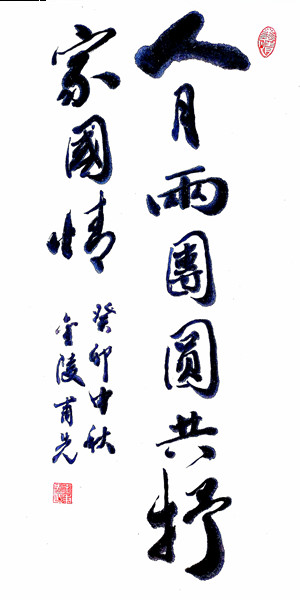 人月兩團圓共抒
家國情
癸卯中秋
金陵甫先